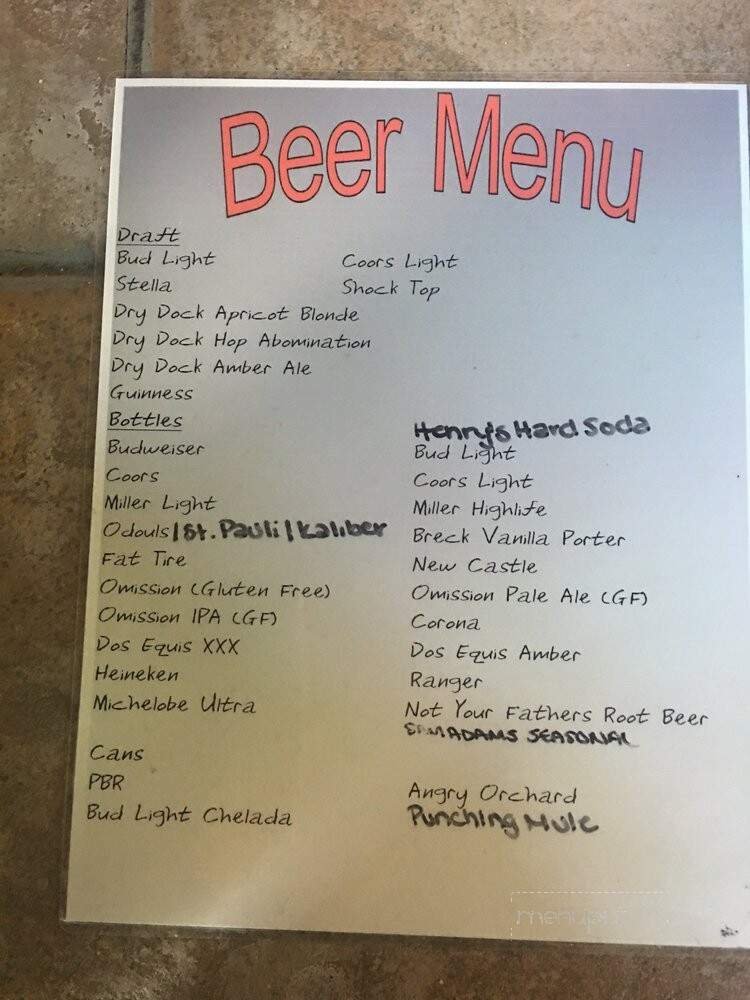 Beer Menu
Draft
Bud Light
Coors Light
Stella
Shock Top
Dry Dock Apricot Blonde
Dry Dock Hop Abomination
Dry Dock Amber Ale
Guinness
Bottles
Henry's Hard Soda
Budweiser
Bud Light
Coors
Coors Light
Miller Light
Miller Highlife
Odouls / St. Pauli / Kaliber
Breck Vanilla Porter
Fat Tire
New Castle
Omission (Gluten Free)
Omission Pale Ale (GF)
Omission IPA (GF)
Corona
Dos Equis XXX
Dos Equis Amber
Heineken
Ranger
Michelobe Ultra
Not Your Fathers Root Beer
SAM ADAMS SEASONAL
Cans
PBR
Angry Orchard
Bud Light Chelada
Punching Mule